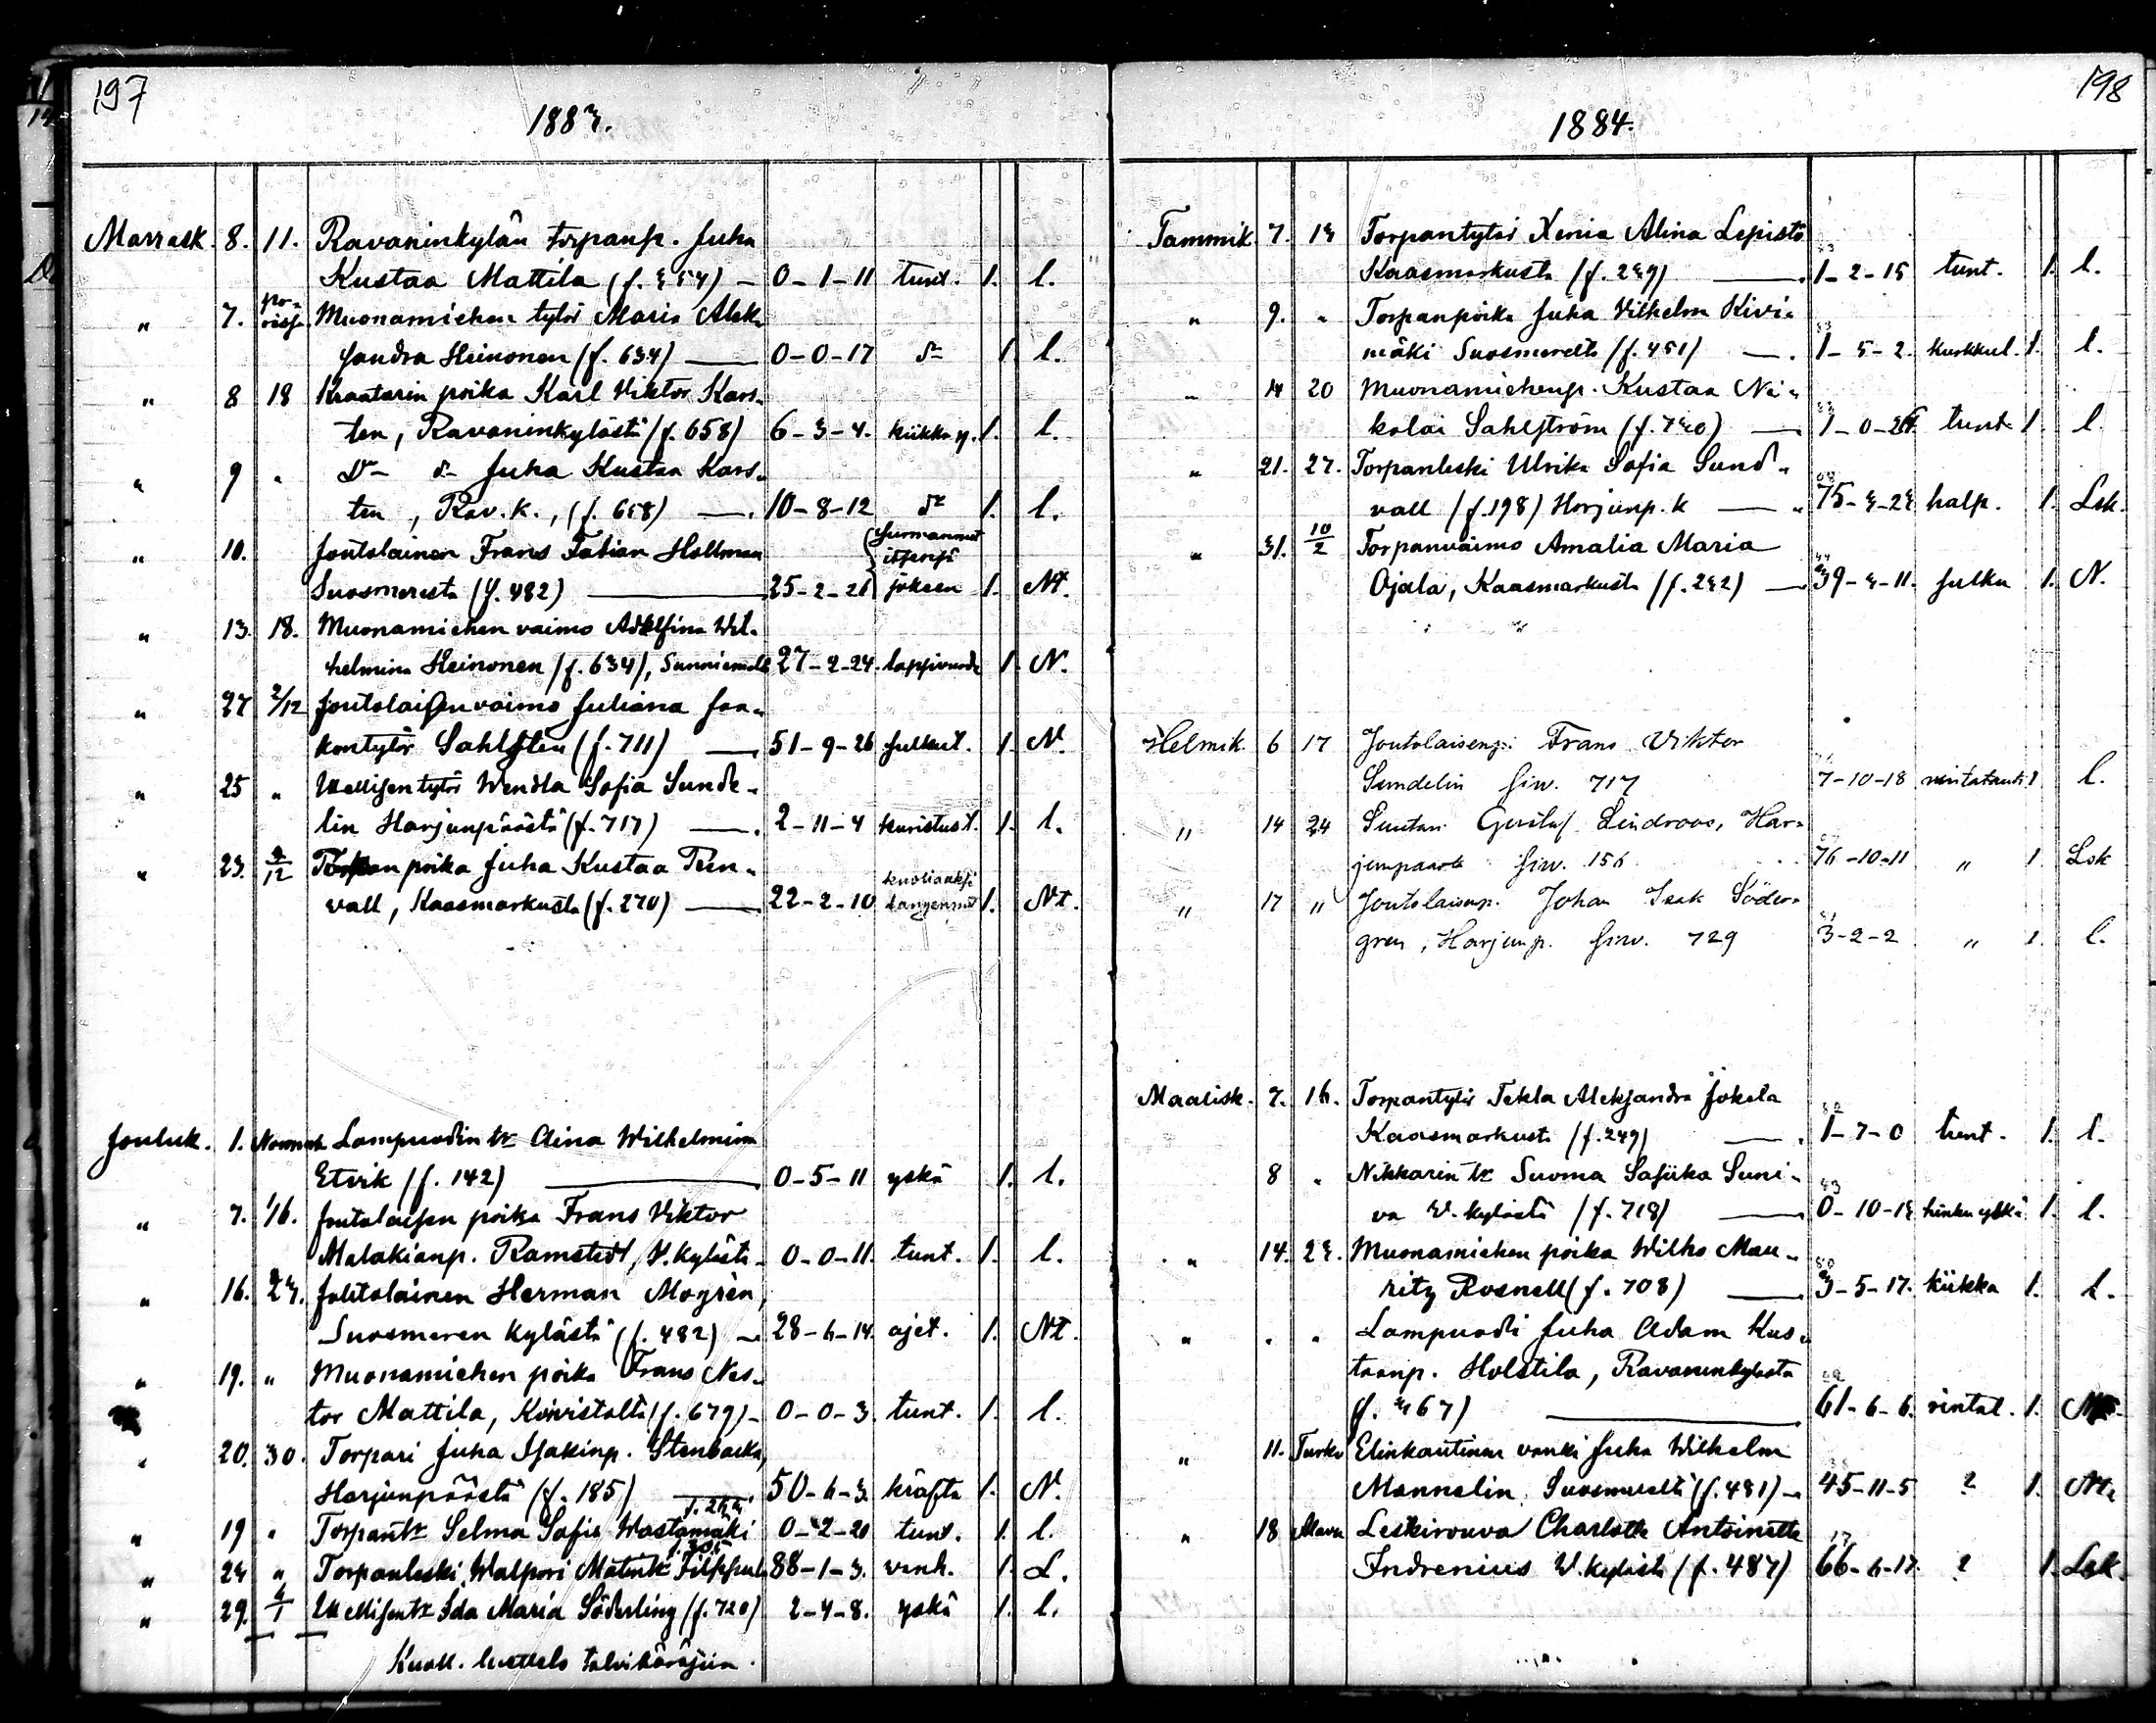 197
1883.
Marrask. 8. 11. Ravaninkylän torpanp. Juha
Kustaa Mattila (f. 334) — 0-1-11 tunt. 1. l.
" 7. Muonamiehen tytär Maria Alek-
sandra Heinonen (f. 634) — 0-0-17 d:o 1. l.
" 8 18 Kraatarin poika Karl Viktor Kars-
ten, Ravaninkylästä (f. 658) 6-3-4. kiikka y. 1. l.
" 9 " D:o d:o Juha Kustaa Kars-
ten, Rav.k., (f. 658) — 10-8-12 d:o 1. l.
" 10. Joutolainen Frans Fabian Hollman surmannut itsensä
Suosmeresta (f. 482) — 25-2-21 jokeen 1. Nt.
" 13. 18. Muonamiehen vaimo Adolfina Wil-
helmina Heinonen (f. 634), Sunniemelt 27-2-24. lapsivuode 1. N.
" 27 2/12 Joutolaisen vaimo Juliana Jaa-
kontytär Sahlsten (f. 711) — 51-9-26 1. N.
" 25 " Itsellisen tytär Wendla Sofia Sunde-
lin Harjunpäästä (f. 717) — 2-11-4 kuristust. 1. l.
" 23. 2/12 Torpan poika Juha Kustaa Ren-
vall, Kaasmarkusta (f. 270) — 22-2-10 kuoliaaksi 1. Nt.
Jouluk. 1. Lampuodin t:r Aina Wilhelmina
Etvik (f. 142) — 0-5-11 yskä 1. l.
" 7. 16. Joutolaisen poika Frans Viktor
Malakianp. Ramstedt, V. kylästä 0-0-11. tunt. 1. l.
" 16. 23. Joutolainen Herman Mogrén,
Suosmeren kylästä (f. 482) — 28-6-14. ajet. 1. Nt.
" 19. " Muonamiehen poika Frans Nes-
tor Mattila, Koivistolta (f. 679) — 0-0-3. tunt. 1. l.
" 20. 30. Torpari Juha Isakinp. Stenbacka,
Harjunpäästä (f. 185) — 50-6-3. kräfta 1. N.
" 19 " Torpant:r Selma Sofia Wastamäki 0-2-20 tunt. 1. l.
" 24 " Torpanleski Walpori Matint:r Filppula 88-1-3. vanh. 1. L.
" 29. 6/1 Itsellisent:r Ida Maria Söderling (f. 720) 2-4-8. yskä 1. l.
Kuoll. luettelo talvikäräjiin.
198
1884.
Tammik 7. 13 Torpantytär Xenia Alina Lepistö
Kaasmarkusta (f. 239) — 1-2-15 tunt. 1. l.
" 9. " Torpanpoika Juha Vilhelm Kivi-
mäki Suosmerelta (f. 451) — 1-5-2. kurkkul. 1. l.
" 14 20 Muonamiehenp. Kustaa Ni-
kolai Sahlström (f. 730) — 1-0-26 tunt. 1. l.
" 21. 27. Torpanleski Ulrika Sofia Sund-
vall (f. 198) Harjunp. k — 75-3-23 halp. 1. Lsk.
" 31. 10/2 Torpanvaimo Amalia Maria
Ojala, Kaasmarkusta (f. 232) — 39-3-11. 1. N.
Helmik. 6 17 Joutolaisenp. Frans Viktor
Sundelin siw. 717 7-10-18 rintataut. 1 l.
" 14 24 Lindroos, Har-
junpäästä siw. 156 76-10-11 " 1. Lsk
" 17 " Joutolaisenp. Johan Isak Söder-
gren, Harjunp. siw. 729 3-2-2 " 1. l.
Maalisk. 7. 16. Torpantytär Tekla Aleksandra Jokela
Kaasmarkusta (f. 249) — 1-7-0 tunt. 1. l.
8 " Nikkarin t:r Suoma Safiika Suni-
va V. kylästä (f. 718) — 0-10-13 hinku yskä 1. l.
" 14. 23. Muonamiehen poika Wilho Mau-
ritz Rosnell (f. 708) — 3-5-17. kiikka 1. l.
" " " Lampuodi Juha Adam Kus-
taanp. Holstila, Ravaninkylästä
(f. 367) — 61-6-6. rintat. 1.
" 11. Turku Elinkautinen vanki Juha Wilhelm
Mannelin, Suosmerelta (f. 431) — 45-11-5 ? 1.
" 18 Leskirouva Charlotta Antoinette
Indrenius V. kylästä (f. 487) 66-6-17. ? 1. Lsk.